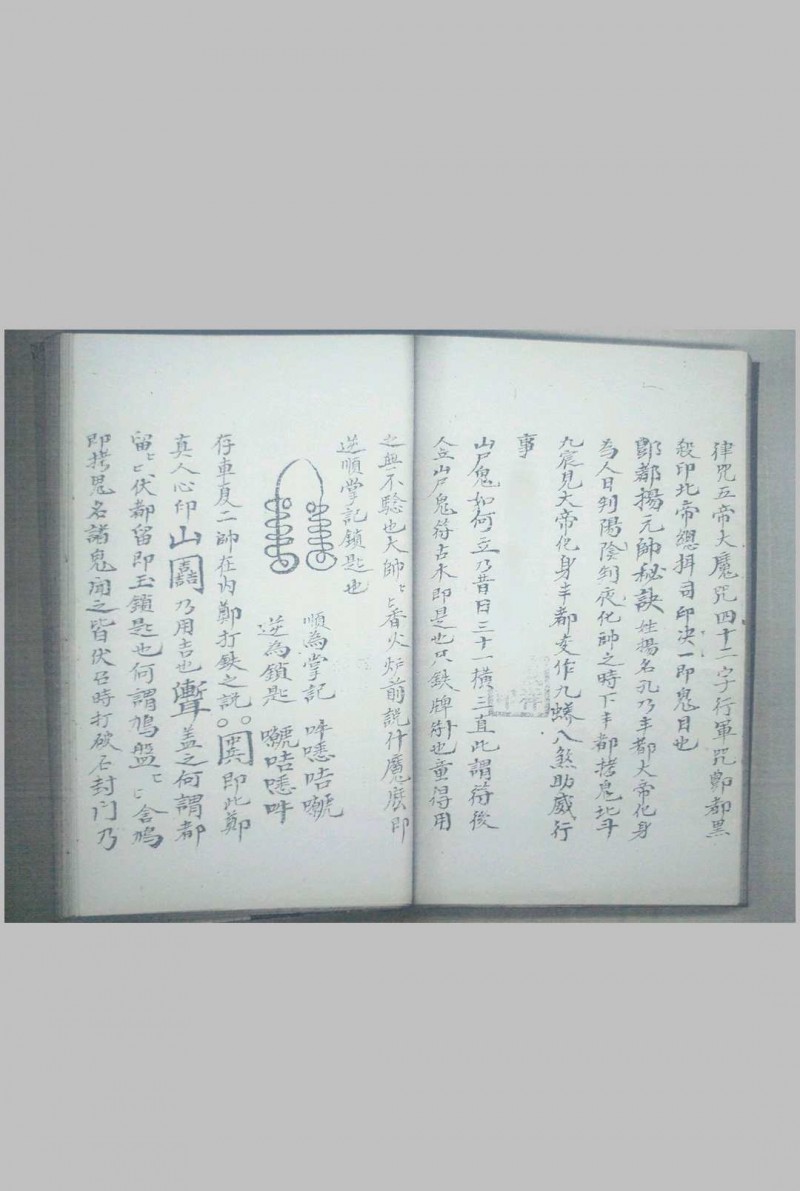 律咒五帝大魔咒四十二字行軍咒酆都黑
殺印北帝總揖司印決一即鬼目也
酆都揚元帥秘訣姓揚名孔乃丰都大帝化身
為人日判陽陰到夜化帥之時下丰都拷鬼北斗
九宸見大帝化身丰都变作九蟒八煞助威行
事
山尸鬼如何立乃昔日三十一橫三直此謂符後
人立山尸鬼符古木即是也只鉄牌符也童得用
之無不驗也大帥〻香火炉前説什魔展即
逆順掌記鎖匙也
順為掌記 吽㗭咭
逆為鎖匙 咭㗭吽
存車夏二帥在內鄭打鉄之説 即此鄭
真人心印山 乃用吉也 蓋之何謂都
留〻伏都留即玉鎖匙也何謂鳩盤〻含鳩
即拷鬼名諸鬼聞之皆伏召時打破石封门乃